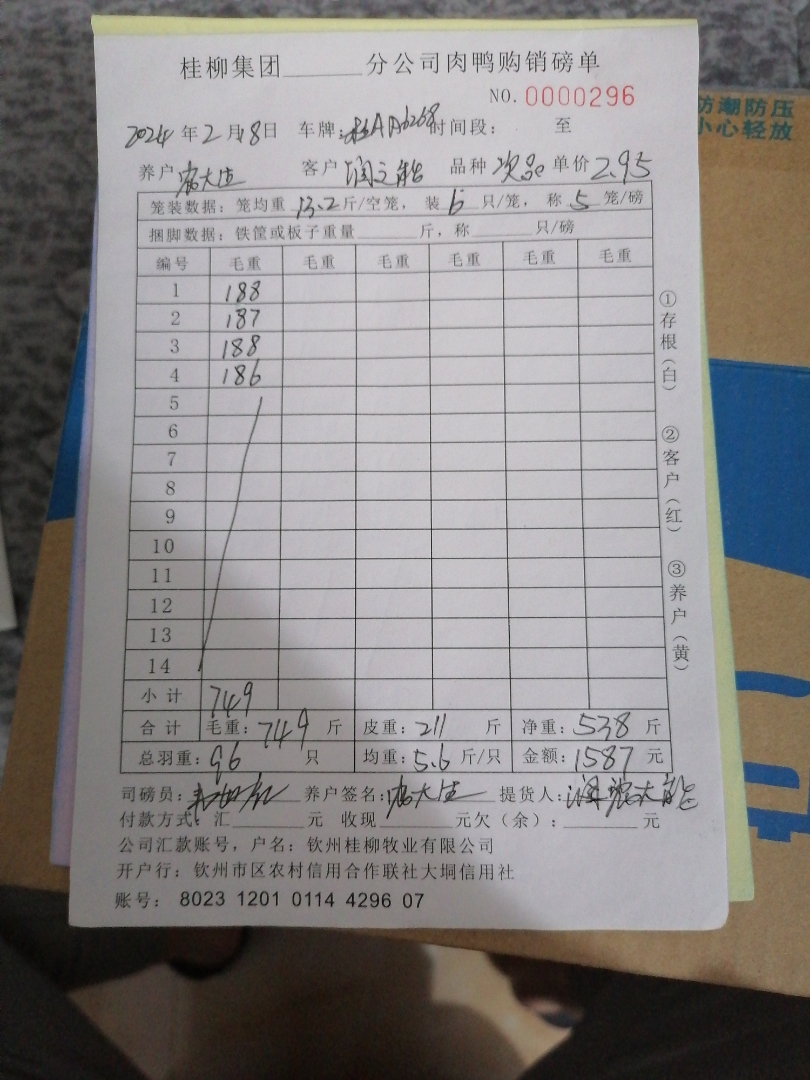 桂柳集团______分公司肉鸭购销磅单
NO. 0000296
防潮防压
小心轻放
2024年2月18日 车牌:桂AA6268 时间段: 至
养户 客户 品种 次品 单价 2.95
笼装数据:笼均重 13.2 斤/空笼,装 6 只/笼,称 5 笼/磅
捆脚数据:铁筐或板子重量______斤,称______只/磅
编号 毛重 毛重 毛重 毛重 毛重 毛重
1 188
2 187
3 188
4 186
5
6
7
8
9
10
11
12
13
14
小计 749
合计 毛重:749 斤 皮重:211 斤 净重:538 斤
总羽重:96 只 均重:5.6 斤/只 金额:1587 元
司磅员: 养户签名: 提货人:
付款方式:汇______元 收现______元欠(余):______元
公司汇款账号,户名:钦州桂柳牧业有限公司
开户行:钦州市区农村信用合作联社大垌信用社
账号: 8023 1201 0114 4296 07
①存根(白)
②客户(红)
③养户(黄)